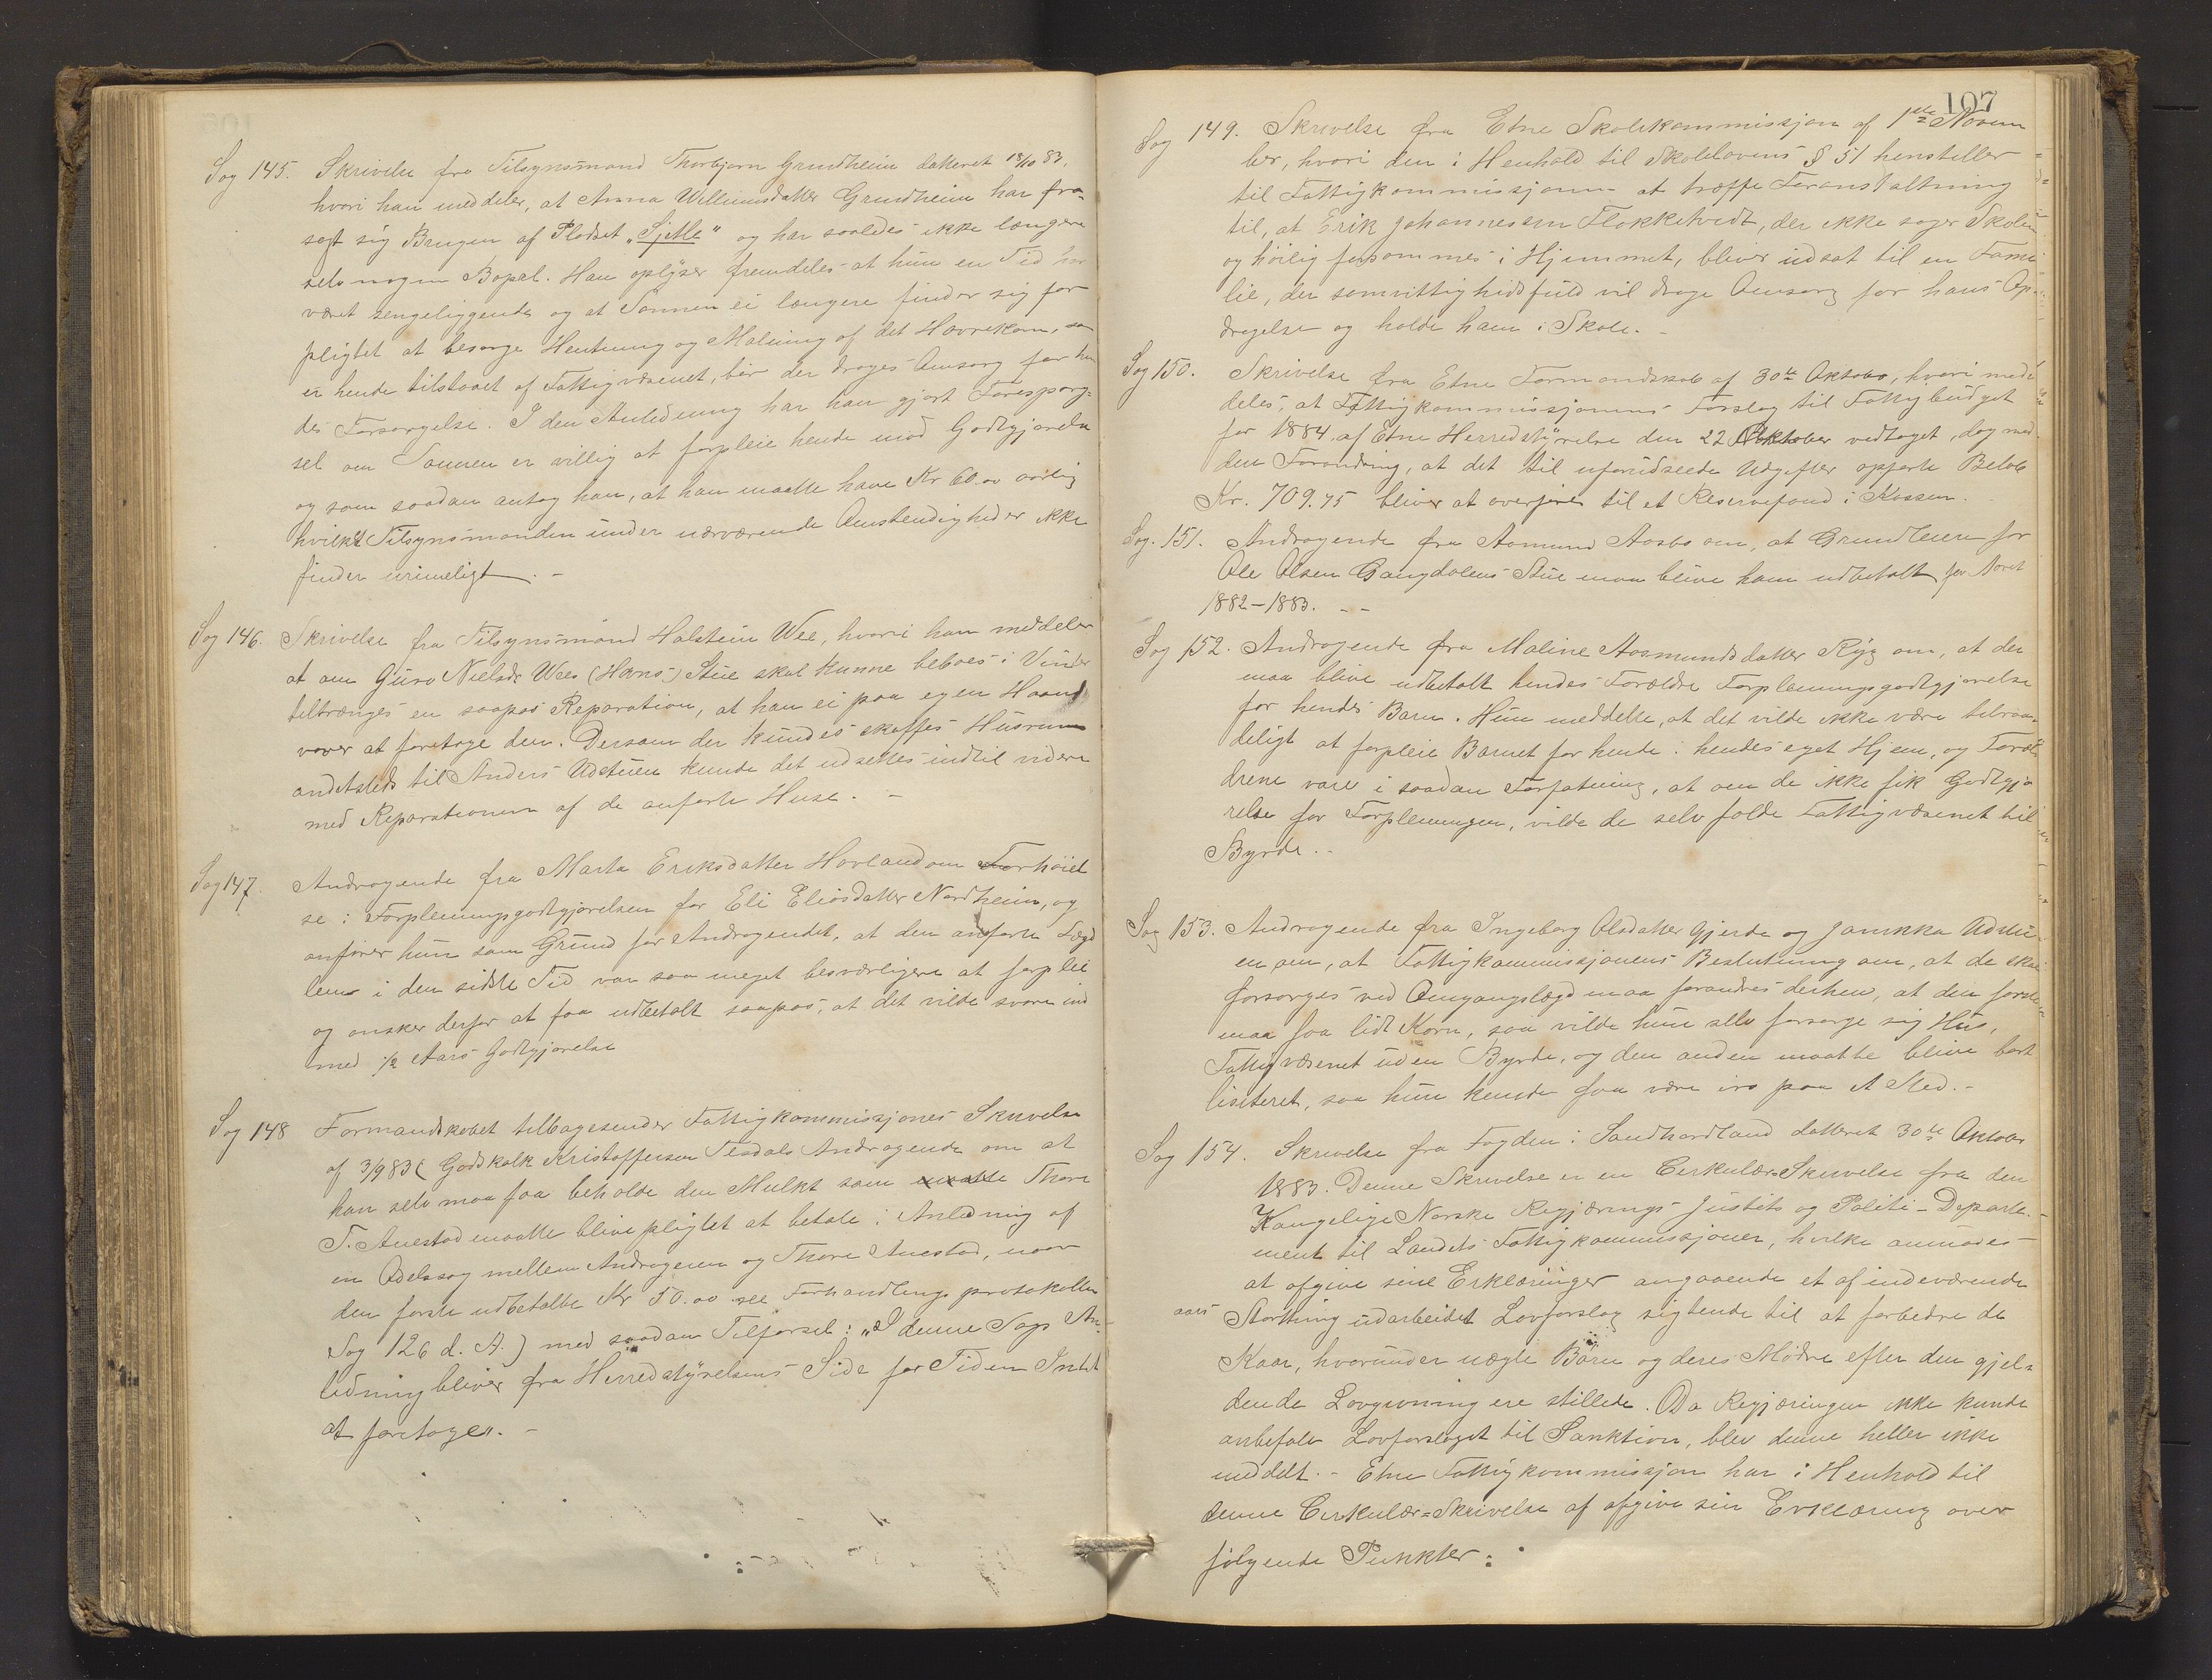 Sag 145. Skrivelse fra Tilsynsmand Thorbjørn Grindheim datteret 18/10 83,
hvori han meddeler, at Anna Willumsdatter Grindheim har fra-
sagt sig Brugen af Pladset "Sjelle" og har saaledes ikke længere
selv nogen Bopæl. Han oplyser fremdeles at hun en Tid har
været sengeliggende og at Sønnen ei længere finder sig for
pligtet at besørge Hentning og Malning af det Havrekorn, som
er hende tilstaaet af Fattigvæsenet, bør der drages Omsorg for hen
des Forsørgelse. I den Anledning har han gjort Forespørg-
sel om Sønnen er villig at forpleie hende mod Godtgjørelse
og som saadan antog han, at han maatte have Kr 60.00 aarlig
hvilket Tilsynsmanden under nærværende Omstendigheder ikke
finder urimeligt. -
Sag 146. Skrivelse fra Tilsynsmand Halstein Wee, hvori han meddeler
at om Guro Nielsdr Wees (Hans) Stue skal kunne beboes i Vinter
tiltrænges en saapas Reparation, at han ei paa egen Haand
vover at foretage den. Dersom der kundes skaffes Husrum
andetsteds til Anders Udstuen kunde det udsættes indtil videre
med Reparationen af de anførte Huse. -
Sag 147. Andragende fra Marta Eriksdatter Havland om Forhøiel
se i Forpleiningsgodtgjørelsen for Eli Eliasdatter Nordheim, og
anfører hun som Grund for Andragendet, at den anførte Lægd
lem i den sidste Tid var saa meget besværligere at forpleie
og ønsker derfor at faa udbetalt saapas, at det vilde svare ind
med 1/2 Aars Godtgjørelse
Sag 148 Formandskabet tilbagesender Fattigkommissjones Skrivelse
af 3/9 83 (Godskalk Kristoffersen Tesdals Andragende om at
han selv maa faa beholde den Mulkt som maatte Thore
T. Anestad maatte blive pligtet at betale i Anledning af
en Odelssag mellem Andrageren og Thore Anestad, naar
den første udbetalte Kr 50.00 see Forhandlings protokollen
Sag 126 d. A.) med saadan Tilførsel: "I denne Sags An-
ledning bliver fra Herredstyrelsens Side for Tiden Intet
at foretage". -
107
Sag 149. Skrivelse fra Etne Skolekommissjon af 1ste Novem
ber, hvori den i Henhold til Skolelovens § 51 henstiller
til Fattigkommissjonen at træffe Foranstaltning
til, at Erik Johannessen Flokketvedt, der ikke søger Skolen
og høilig forsømmes i Hjemmet, bliver udsat til en Fami
lie, der samvittighedsfuld vil drage Omsorg for hans Op-
dragelse og holde ham i Skole. -
Sag 150. Skrivelse fra Etne Formandskab af 30te Oktober, hvori med-
deles, at Fattigkommissjonens Forslag til Fattigbudget
for 1884 af Etne Herredstyrelse den 22 Oktober vedtaget, dog med
den Forandring, at det til uforudseede Udgifter opførte Beløb
Kr. 709.75 bliver at overføres til et Reservefond i Kassen.
Sag. 151. Andragende fra Aamund Aasbø om, at Grundleien for
Ole Olsen Gangdalens Stue maa blive ham udbetalt for Aaret
1882-1883. --
Sag 152. Andragende fra Maline Aasmundsdatter Ryg om, at der
maa blive udbetalt hendes Forældre Forpleiningsgodtgjørelse
for hendes Barn. Hun meddelte, at det vilde ikke være tilraa-
deligt at forpleie Barnet for hende i hendes eget Hjem, og Foræl
drene vare i saadan Forfatning, at om de ikke fik Godtgjø
relse for Forpleiningen, vilde de selv falde Fattigvæsenet til
Byrde. -
Sag 153. Andragende fra Ingeborg Olsdatter Gjerde og Jannikka Udstu-
en om, at Fattigkommissjonens Beslutning om, at de skal
forsørges ved Omgangslægd maa forandres derhen, at den første
maa faa lidt Korn, saa vilde hun selv forsørge sig Hus,
Fattigvæsenet uden Byrde, og den anden maatte blive bort
liciteret, saa hun kunde faa være i ro paa et Sted. -
Sag 154. Skrivelse fra Fogden i Søndhordland datteret 30te Oktober
1883. Denne Skrivelse er en Cerkulær-Skrivelse fra den
Kongelige Norske Regjærings Justits og Politi-Departe-
ment til Landets Fattigkommissjoner, hvilke anmodes
at afgive sine Erklæringer angaaende et af indeværende
aars Storthing udarbeidet Lovforslag sigtende til at forbedre de
Kaar, hvorunder uægte Børn og deres Mødre efter den gjel-
dende Lovgivning ere stillede. Da Regjæringen ikke kunde
anbefale Lovforslaget til Sanktion, blev denne heller ikke
meddelt. - Etne Fattigkommissjon har i Henhold til
denne Cerkulær-Skrivelse af afgive sin Erklæring over
følgende Punkter: